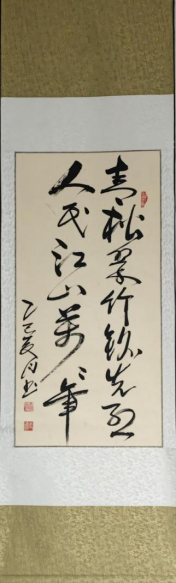 青松翠竹颂先烈
人民江山万々年
乙巳夏月书